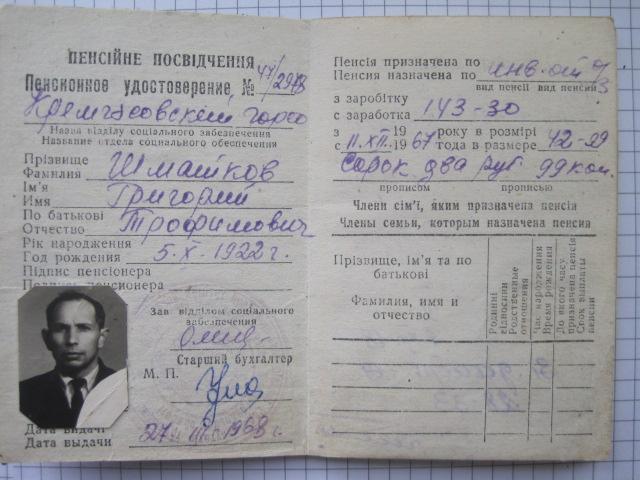 ПЕНСІЙНЕ ПОСВІДЧЕННЯ
Пенсионное удостоверение №
Назва відділу соціального забезпечення
Название отдела социального обеспечения
Прізвище
Фамилия Шмайков
Ім'я
Имя Григорий
По батькові
Отчество Трофимович
Рік народження
Год рождения 5.X.1922 г.
Підпис пенсіонера
Подпись пенсионера
Зав відділом соціального
забезпечення
Старший бухгалтер
М. П.
Дата видачі
Дата выдачи 27 III 1968 г.
Пенсія призначена по
Пенсия назначена по инв.
вид пенсії вид пенсии
з заробітку
с заработка 143-30
з 19 року в розмірі
с 11.XII.1967 года в размере 42-99
Сорок два руб 99 коп.
прописом прописью
Члени сім'ї, яким призначена пенсія
Члены семьи, которым назначена пенсия
Прізвище, ім'я та по
батькові
Фамилия, имя и
отчество
Родинні
відносини
Родственные
отношения
Час народження
Время рождения
До якого часу
призначена пенсія
Срок выплаты
пенсии